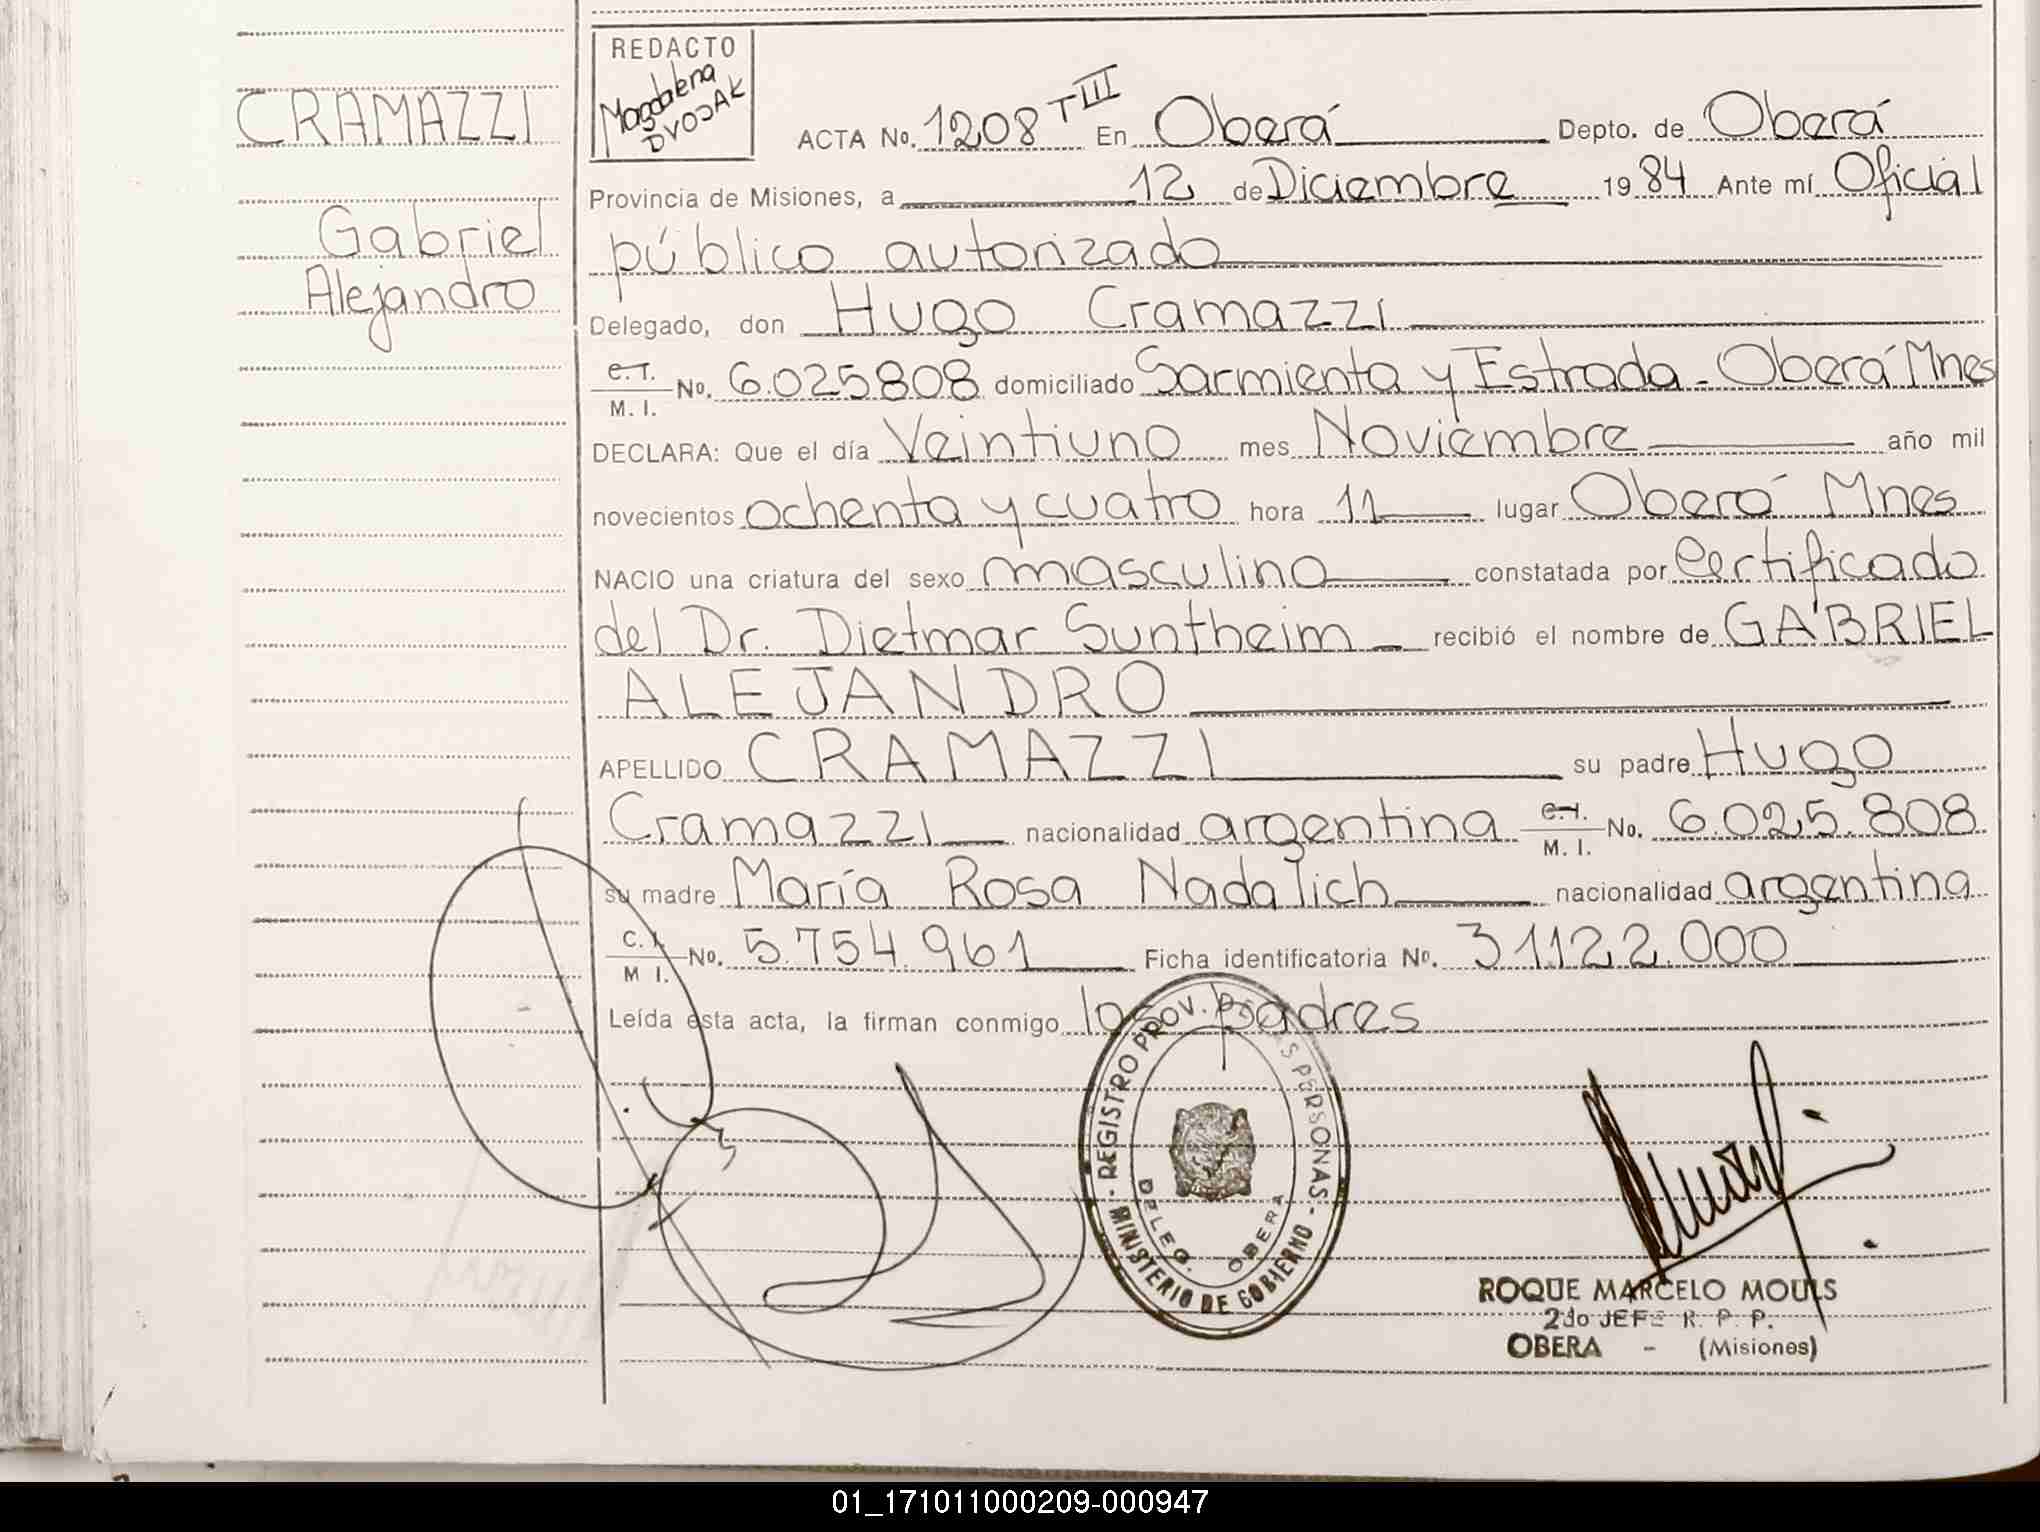 CRAMAZZI
Gabriel
Alejandro
REDACTO
Magdalena
DVOJAK
ACTA No. 1208 T III En Oberá Depto. de Oberá
Provincia de Misiones, a 12 de Diciembre 1984 Ante mí Oficial
público autorizado
Delegado, don Hugo Cramazzi
C.I. / M. I. No. 6.025808 domiciliado Sarmiento y Estrada - Oberá Mnes
DECLARA: Que el día Veintiuno mes Noviembre año mil
novecientos ochenta y cuatro hora 11 lugar Oberá Mnes
NACIO una criatura del sexo masculino constatada por Certificado
del Dr. Dietmar Suntheim recibió el nombre de GABRIEL
ALEJANDRO
APELLIDO CRAMAZZI su padre Hugo
Cramazzi nacionalidad argentina C.I. / M. I. No. 6.025.808
su madre María Rosa Nadalich nacionalidad argentina
C. I. / M I. No. 5.754.961 Ficha identificatoria No. 31.122.000
Leída esta acta, la firman conmigo los padres
- REGISTRO PROV. DE LAS PERSONAS -
MINISTERIO DE GOBIERNO
DELEG. OBERA
ROQUE MARCELO MOULS
2do JEFE R. P. P.
OBERA - (Misiones)
01_171011000209-000947